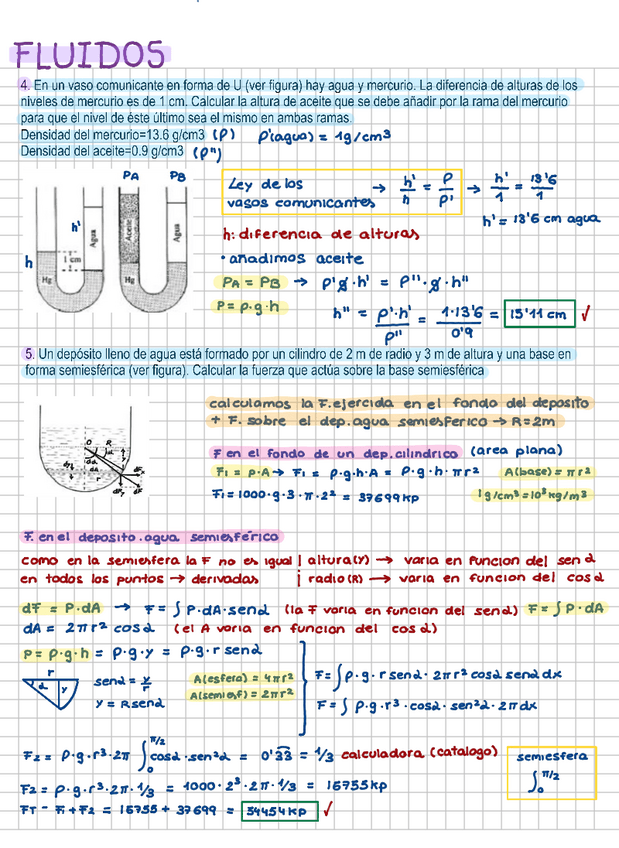 FLUIDOS
4. En un vaso comunicante en forma de U (ver figura) hay agua y mercurio. La diferencia de alturas de los
niveles de mercurio es de 1 cm. Calcular la altura de aceite que se debe añadir por la rama del mercurio
para que el nivel de éste último sea el mismo en ambas ramas.
Densidad del mercurio=13.6 g/cm3 (ρ) ρ'(agua) = 1g/cm3
Densidad del aceite=0.9 g/cm3 (ρ")
PA PB
h' Agua Aceite Agua
h 1 cm
Hg Hg
Ley de los vasos comunicantes → h'/h = ρ/ρ' → h'/1 = 13'6/1
h' = 13'6 cm agua
h: diferencia de alturas
• añadimos aceite
PA = PB → ρ'g·h' = ρ"·g·h"
P = ρ·g·h h" = ρ'·h'/ρ" = 1·13'6/0'9 = 15'11 cm √
5. Un depósito lleno de agua está formado por un cilindro de 2 m de radio y 3 m de altura y una base en
forma semiesférica (ver figura). Calcular la fuerza que actúa sobre la base semiesférica
calculamos la F.ejercida en el fondo del deposito
+ F. sobre el dep.agua semiesferico → R=2m
F en el fondo de un dep.cilindrico (area plana)
F1 = P·A → F1 = ρ·g·h·A = ρ·g·h·πr² A(base) = πr²
F1=1000·g·3·π·2² = 37699kp 1g/cm³=10³kg/m3
F. en el deposito.agua semiesférico
como en la semiesfera la F no es igual | altura(Y) → varia en funcion del sen α
en todos los puntos → derivadas | radio(R) → varia en funcion del cos α
dF = P·dA → F = ∫ P·dA·senα (la F varia en funcion del senα) F=∫P·dA
dA = 2πr² cosα (el A varia en funcion del cosα)
P = ρ·g·h = ρ·g·y = ρ·g·r senα
r α y
senα = y/r
y = Rsenα
A(esfera) = 4πr²
A(semiesf) = 2πr²
F=∫ρ·g·r senα·2πr² cosα senα dx
F=∫ρ·g·r³·cosα·sen²α·2πdx
F2 = ρ·g·r³·2π ∫₀^π/2 cosα·sen²α = 0'33 = 1/3 calculadora (catalogo)
semiesfera
∫₀^π/2
F2 = ρ·g·r³·2π·1/3 = 1000·2³·2π·1/3 = 16755kp
FT = F1+F2 = 16755+37699 = 54454kp √